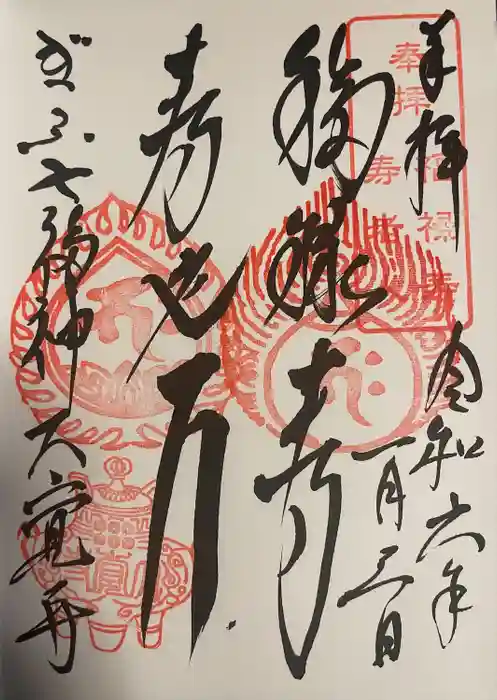 奉拝
令和六年
一月三日
福禄寿
寿老尊
ぎふ七福神 大覚寺
奉拝
福禄寿
寿老人